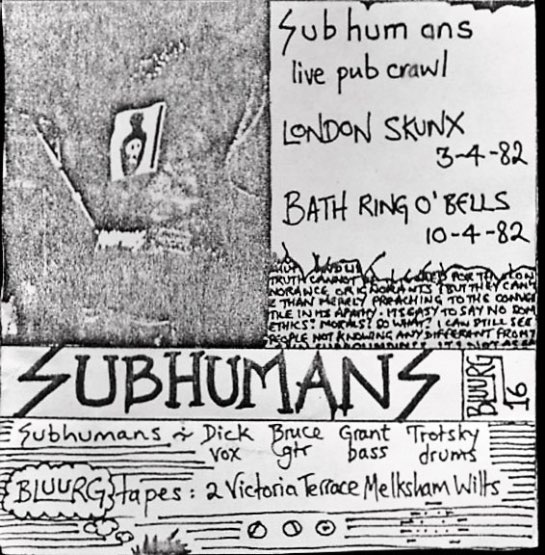 Subhumans
live pub crawl
LONDON SKUNX
3-4-82
BATH RING O'BELLS
10-4-82
TRUTH CANNOT
NORANCE OR IGNORANTS (BUT THEY CAN'
E THAN MERELY PREACHING TO THE CONVE
TILE IN ITS APATHY. IT'S EASY TO SAY NO
ETHICS? MORALS? SO WHAT? I CAN STILL SEE
PEOPLE NOT KNOWING ANY DIFFERENT FROM T
SUBHUMANS
BLUURG
16
Subhumans ~ Dick Bruce Grant Trotsky
vox gtr bass drums
BLUURG tapes: 2 Victoria Terrace Melksham Wilts